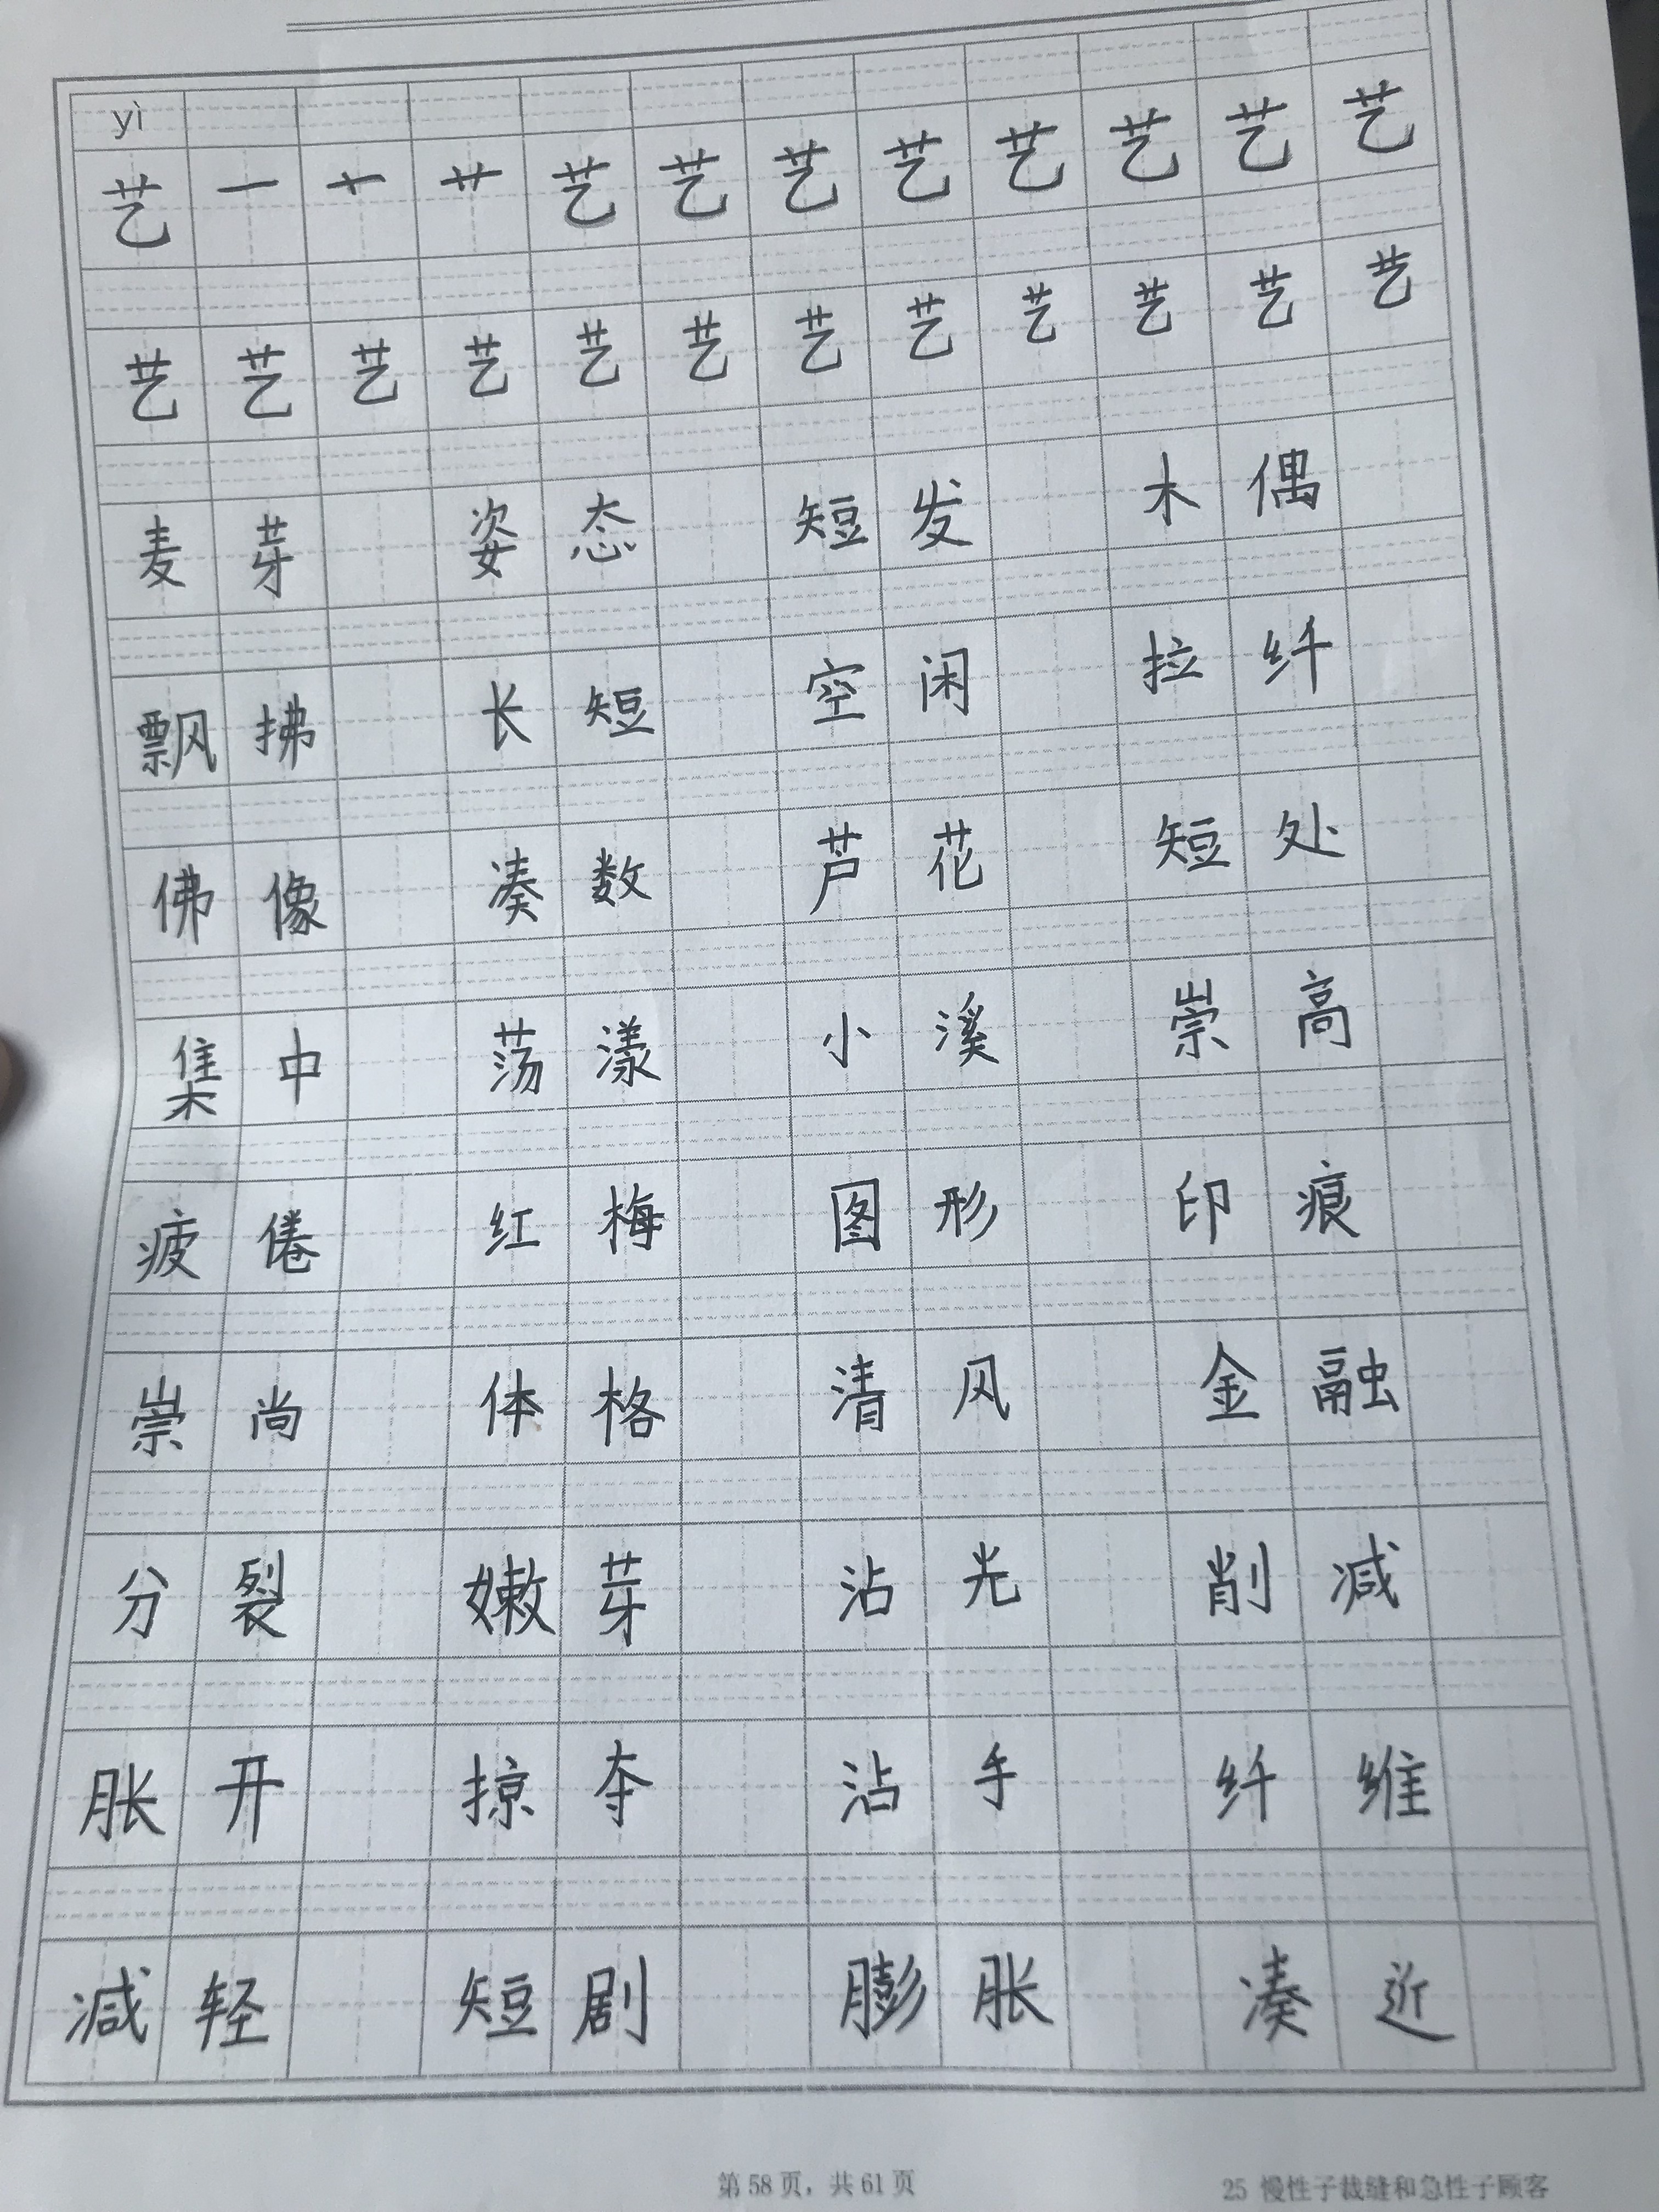 yì
艺 一 艹 艺 艺 艺 艺 艺 艺 艺 艺
艺 艺 艺 艺 艺 艺 艺 艺 艺 艺 艺 艺
麦芽 姿态 短发 木偶
飘拂 长短 空闲 拉纤
佛像 凑数 芦花 短处
集中 荡漾 小溪 崇高
疲倦 红梅 图形 印痕
崇尚 体格 清风 金融
分裂 嫩芽 沾光 削减
胀开 掠夺 沾手 纤维
减轻 短剧 膨胀 凑近
第 58 页，共 61 页 25 慢性子裁缝和急性子顾客